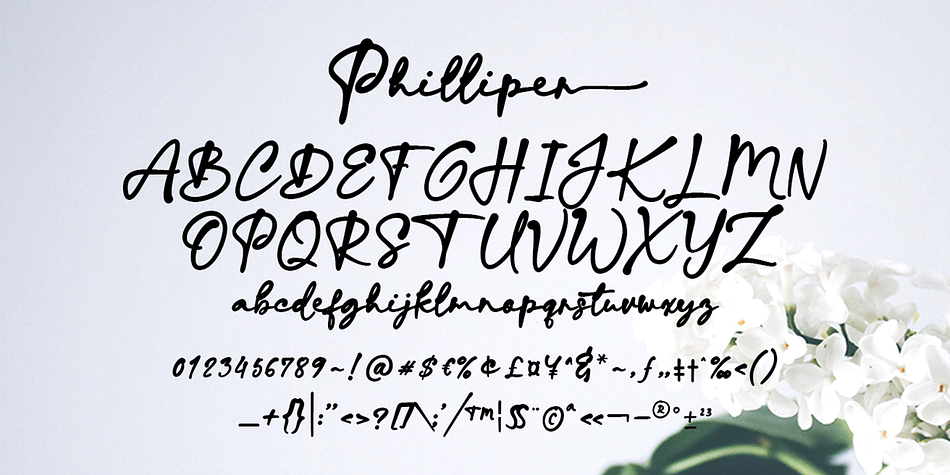 Phillipen
ABCDEFGHIJKLMN
OPQRSTUVWXYZ
abcdefghijklmnopqrstuvwxyz
0123456789~!@#$€%¢£¤¥^&*~,ƒ„‡†ˆ‰<()
_+{}|:”<>?[]\;’/™¦§¨©ª«¬—®°±²³